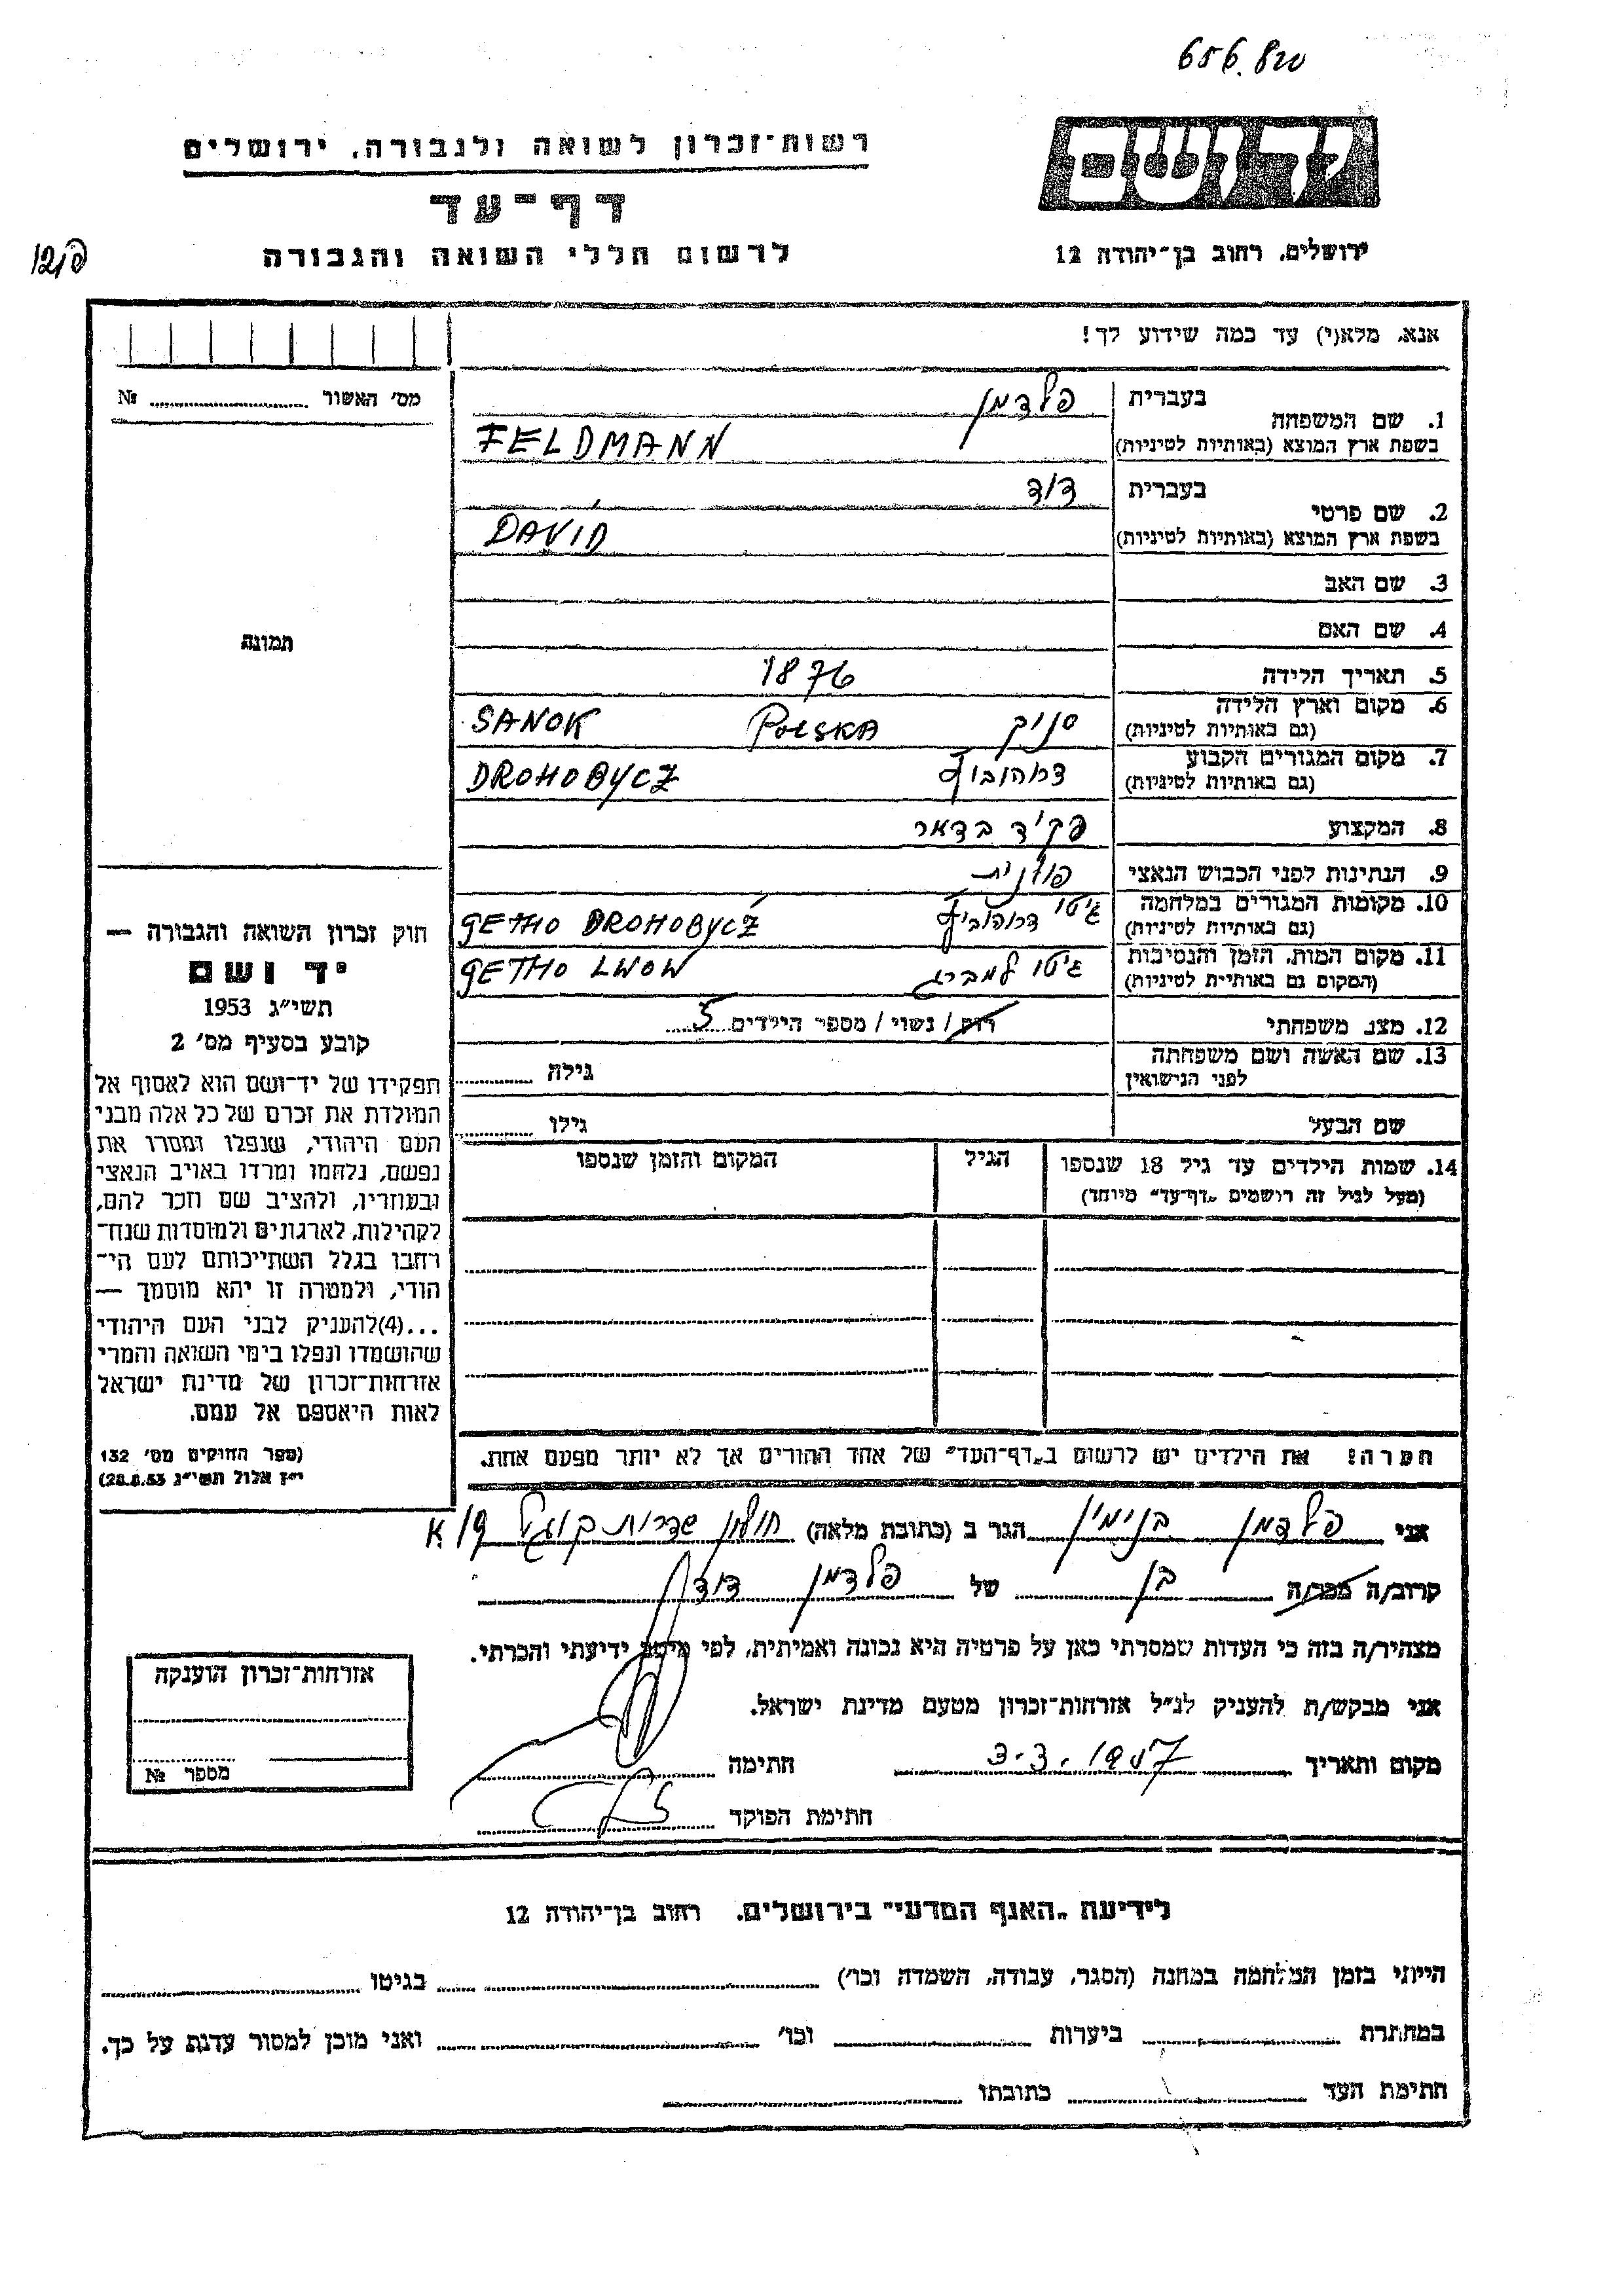 656.820
רשות־זכרון לשואה ולגבורה, ירושלים
יד ושם
דף־עד
לרשום חללי השואה והגבורה
ירושלים, רחוב בן־יהודה 12
אנא, מלא(י) עד כמה שידוע לך!
מס׳ האשור № 
1. שם המשפחה בעברית פלדמן
בשפת ארץ המוצא (באותיות לטיניות) FELDMANN
2. שם פרטי בעברית דוד
בשפת ארץ המוצא (באותיות לטיניות) DAVID
3. שם האב
4. שם האם
תמונה
5. תאריך הלידה 1876
6. מקום וארץ הלידה (גם באותיות לטיניות) סנוק POLSKA SANOK
7. מקום המגורים הקבוע (גם באותיות לטיניות) דרוהוביץ DROHOBYCZ
8. המקצוע פקיד בדאר
9. הנתינות לפני הכבוש הנאצי פולנית
10. מקומות המגורים במלחמה (גם באותיות לטיניות) גיטו דרוהוביץ GETHO DROHOBYCZ
11. מקום המות, הזמן והנסיבות (המקום גם באותיית לטיניות) גיטו למברג GETHO LWOW
12. מצב משפחתי רוק / נשוי / מספר הילדים 5
13. שם האשה ושם משפחתה לפני הנישואין גילה
שם הבעל גילו
14. שמות הילדים עד גיל 18 שנספו הגיל המקום והזמן שנספו
(מעל לגיל זה רושמים „דף־עד״ מיוחד)
חוק זכרון השואה והגבורה —
יד ושם
תשי״ג 1953
קובע בסעיף מס׳ 2
תפקידו של יד־ושם הוא לאסוף אל
המולדת את זכרם של כל אלה מבני
העם היהודי, שנפלו ומסרו את
נפשם, נלחמו ומרדו באויב הנאצי
ובעוזריו, ולהציב שם וזכר להם,
לקהילות, לארגונים ולמוסדות שנח־
רחבו בגלל השתייכותם לעם הי־
הודי, ולמטרה זו יהא מוסמך —
...(4)להעניק לבני העם היהודי
שהושמדו ונפלו בימי השואה והמרי
אזרחות־זכרון של מדינת ישראל
לאות היאספם אל עמם.
(ספר החוקים מס׳ 132
י״ז אלול תשי״ג 28.8.53)
הערה! את הילדים יש לרשום ב„דף־העד״ של אחד ההורים אך לא יותר מפעם אחת.
אני פלדמן בנימין הגר ב (כתובת מלאה) חולון שדרות קוגל 19 א
קרוב/ה מכר/ה בן של פלדמן דוד
מצהיר/ה בזה כי העדות שמסרתי כאן על פרטיה היא נכונה ואמיתית, לפי מיטב ידיעתי והכרתי.
אני מבקש/ת להעניק לנ״ל אזרחות־זכרון מטעם מדינת ישראל.
מקום ותאריך 3.3.1957 חתימה
חתימת הפוקד
אזרחות־זכרון הוענקה
מספר №
לידיעת „האגף המדעי״ בירושלים, רחוב בן־יהודה 12
הייתי בזמן המלחמה במחנה (הסגר, עבודה, השמדה וכו׳) בגיטו
במחתרת ביערות וכו׳ ואני מוכן למסור עדות על כך.
חתימת העד כתובתו